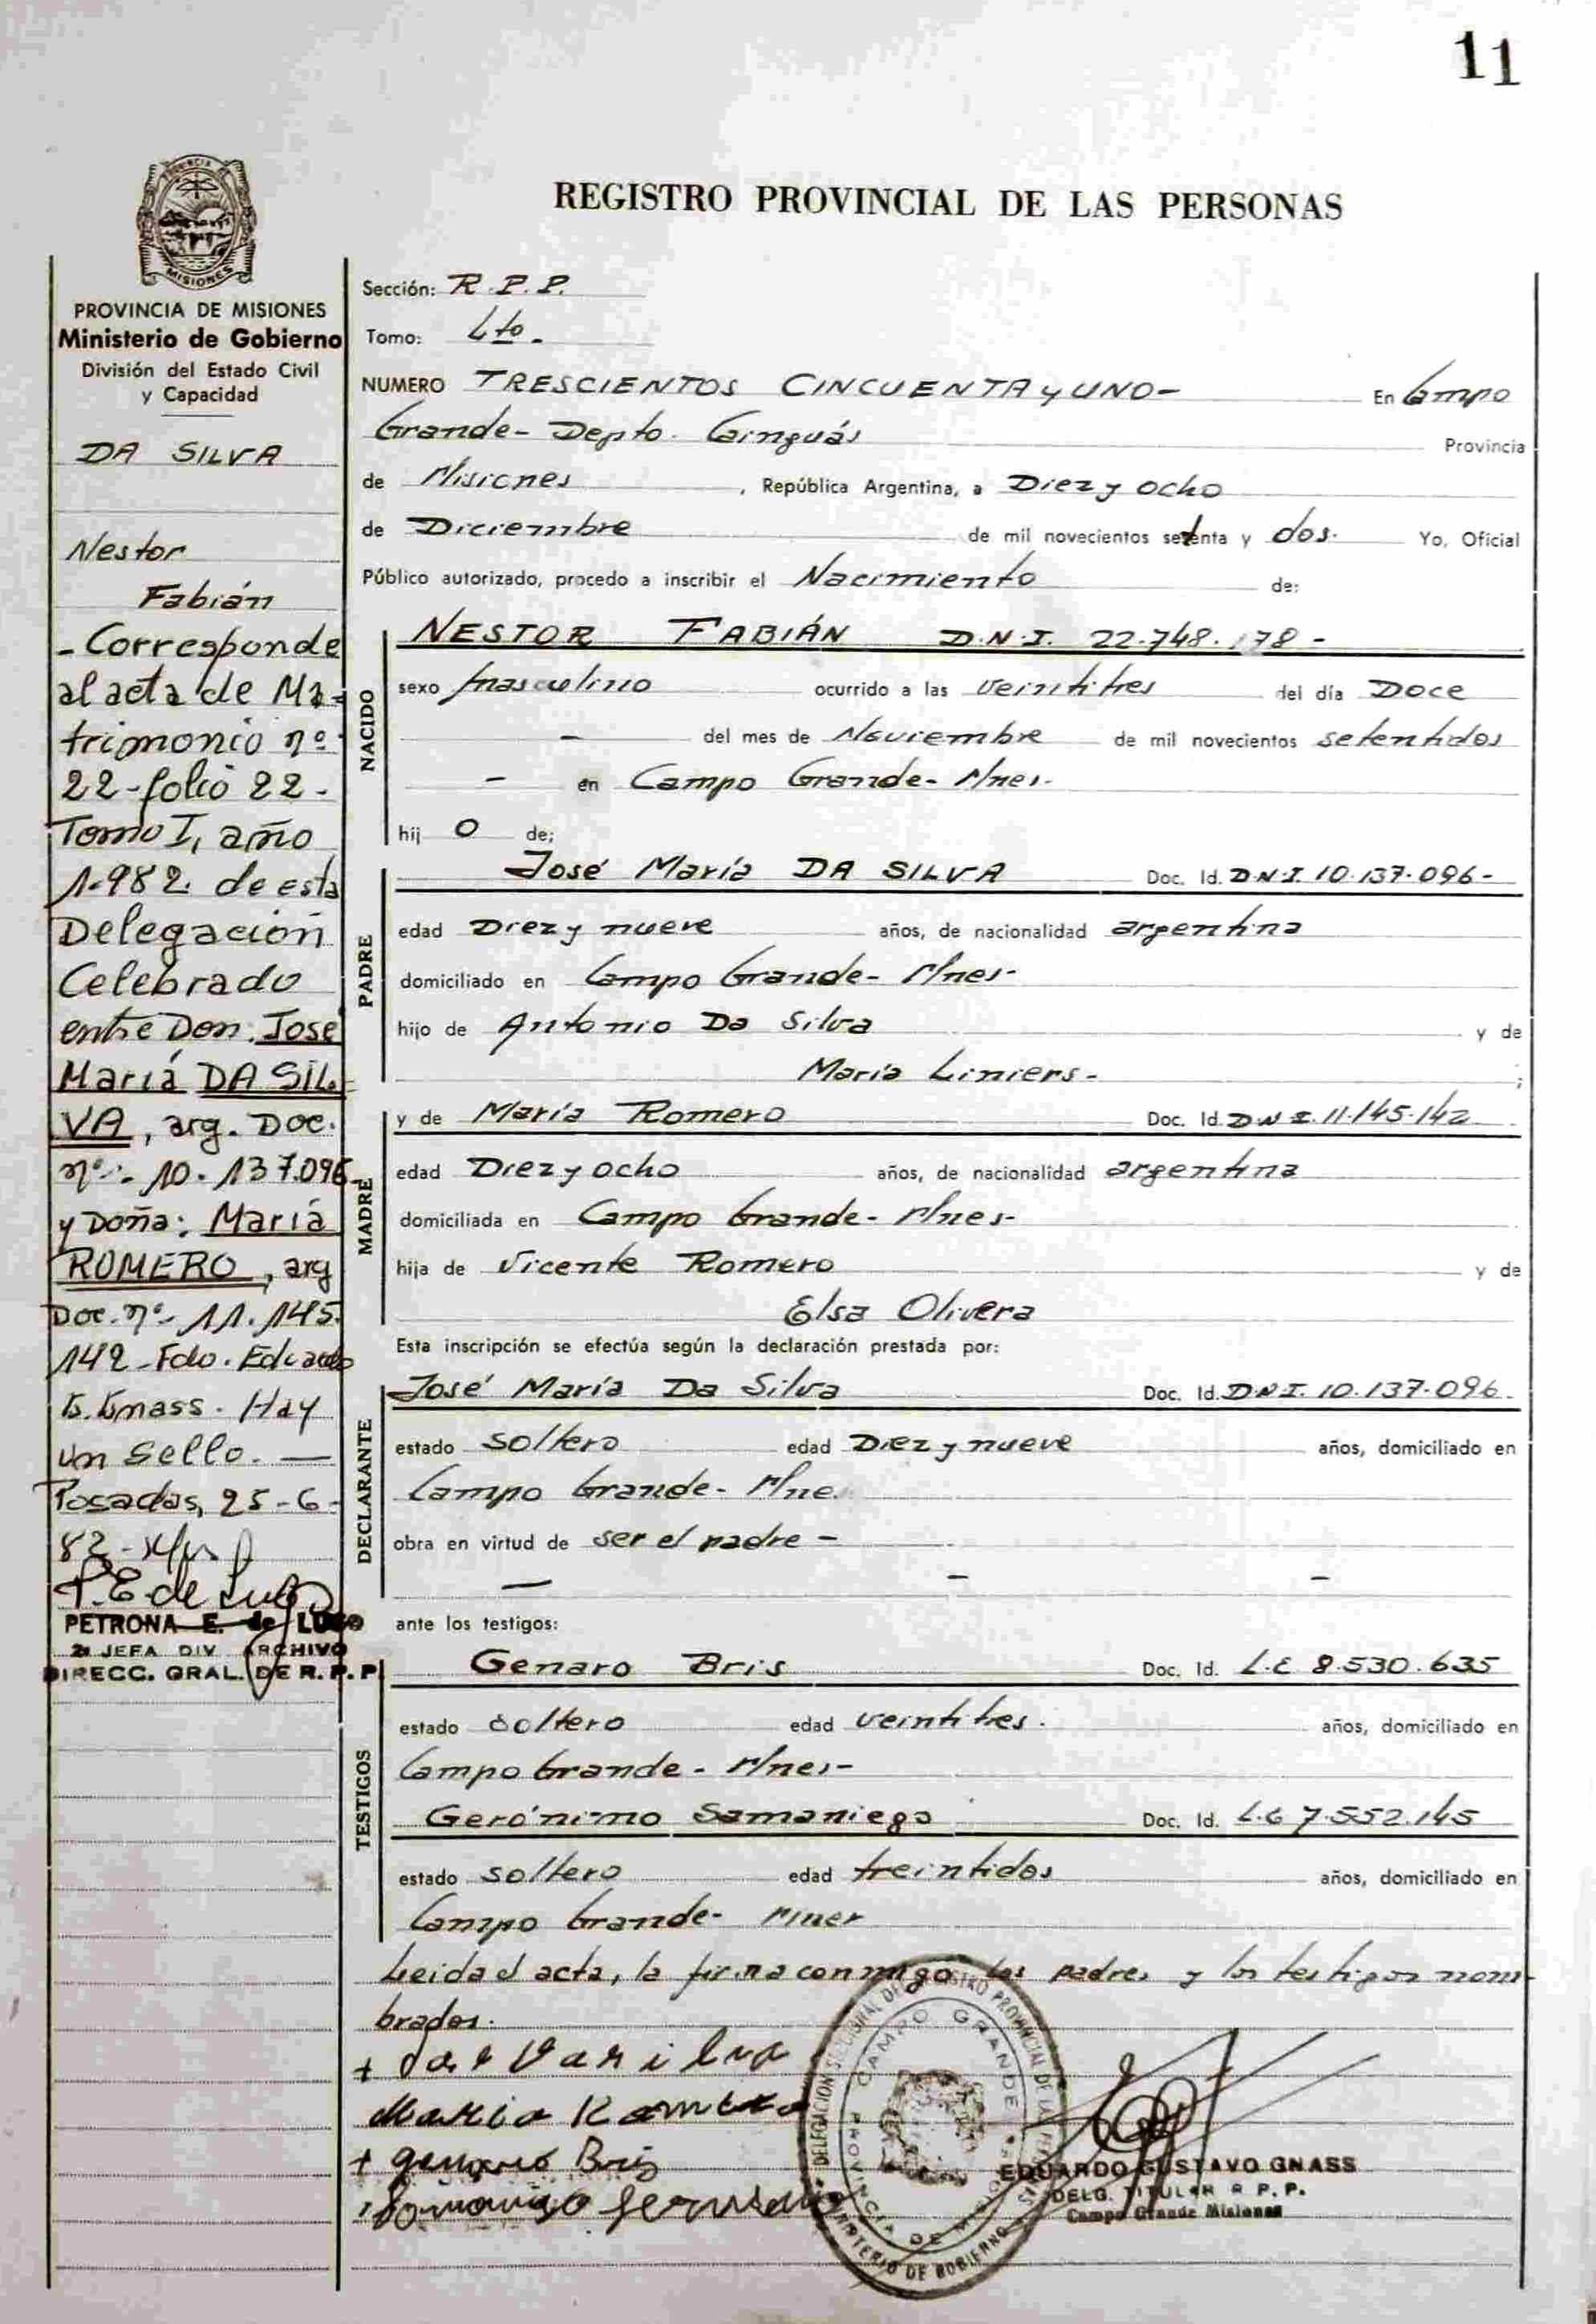 11
REGISTRO PROVINCIAL DE LAS PERSONAS
PROVINCIA DE MISIONES
Ministerio de Gobierno
División del Estado Civil
y Capacidad
DA SILVA
Nestor
Fabián
- Corresponde
al acta de Ma-
trimonio nº
22-folio 22-
Tomo I, año
1.982 de esta
Delegación
Celebrado
entre Don: José
María DA SIL-
VA, arg. Doc.
nº- 10.137.096
y Doña: María
ROMERO, arg
Doc. nº- 11.145.
142-Fdo. Eduardo
G. Gnass. Hay
un sello. —
Posadas, 25-6-
82-
P. E de Lugo
PETRONA E. de LUGO
JEFA DIV ARCHIVO
DIRECC. GRAL. DE R. P. P.
Sección: R.P.P.
Tomo: 4to.
NUMERO TRESCIENTOS CINCUENTA y UNO- En Campo
Grande- Depto. Cainguás Provincia
de Misiones, República Argentina, a Diez y ocho
de Diciembre de mil novecientos setenta y dos. Yo, Oficial
Público autorizado, procedo a inscribir el Nacimiento de:
NACIDO
NESTOR FABIÁN D.N.I. 22.748.178-
sexo masculino ocurrido a las veintitres del día Doce
- del mes de Noviembre de mil novecientos setentidos
- en Campo Grande- Mnes-
hij o de;
PADRE
José María DA SILVA Doc. Id. D.N.I. 10.137.096-
edad Diez y nueve años, de nacionalidad argentina
domiciliado en Campo Grande- Mnes-
hijo de Antonio Da Silva y de
María Liniers- ;
MADRE
y de María Romero Doc. Id. D N I. 11.145.142
edad Diez y ocho años, de nacionalidad argentina
domiciliada en Campo Grande- Mnes-
hija de Vicente Romero y de
Elsa Olivera
Esta inscripción se efectúa según la declaración prestada por:
DECLARANTE
José María Da Silva Doc. Id. D.N.I. 10.137.096.
estado soltero edad Diez y nueve años, domiciliado en
Campo Grande- Mne.
obra en virtud de ser el padre -
— - -
ante los testigos:
TESTIGOS
Genaro Bris Doc. Id. L.E 8.530.635
estado soltero edad veintitres. años, domiciliado en
Campo Grande- Mnes-
Gerónimo Samaniego Doc. Id. L.E 7.552.145
estado soltero edad treintidos años, domiciliado en
Campo Grande- Mnes
Leida el acta, la firma conmigo los padres y los testigos nom-
brados.
+ Jose Da Silva
Maria Romero
+ genaro Bris
DELEGACION SECCIONAL DEL REGISTRO PROVINCIAL DE LAS PERSONAS
CAMPO GRANDE
PROVINCIA DE MISIONES
MINISTERIO DE GOBIERNO
EDUARDO GUSTAVO GNASS
DELG. TITULAR R P. P.
Campo Grande Misiones